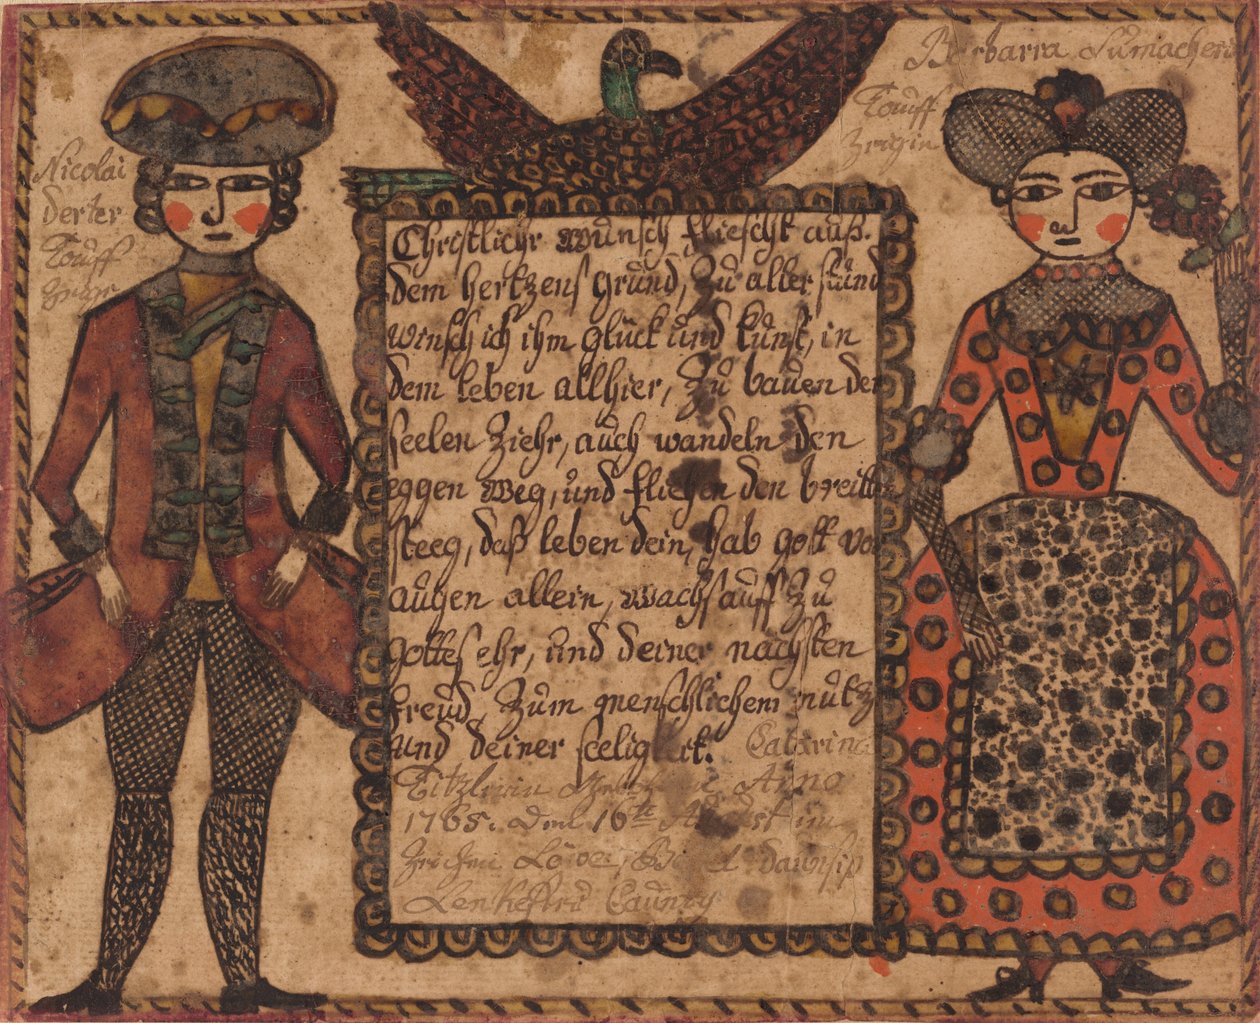 Nicolai
derter
Touff
Barbarra Sumachern
Touff
Zeigin
Christlichr wunsch fliescht auß.
dem hertzens grund, Zu aller stund
winsch ich ihm glück und kunst, in
dem leben allhier, Zu bauen der
seelen Ziehr, auch wandeln den
eggen weg, und fliehen den breitten
steeg, daß leben dein, hab gott vor
augen allein, wachs auff Zu
gottes ehr, und deiner nachsten
freud Zum menschlichem nutz
und deiner seeligkeit. Catarina
Anno
1765. Den 16te August im
daunsip
Lenkestrd Caunty